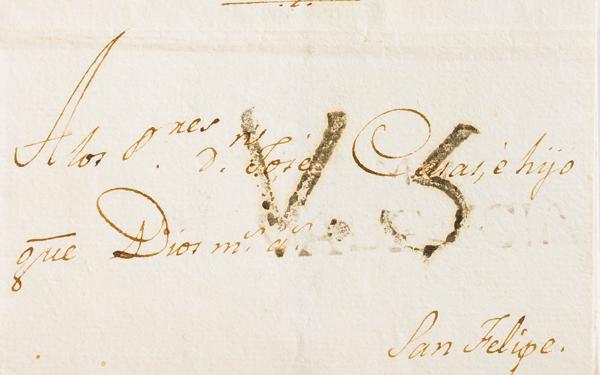 A los S.res d.n José é hijo
V.5
que Dios m.s a.s
San Felipe.